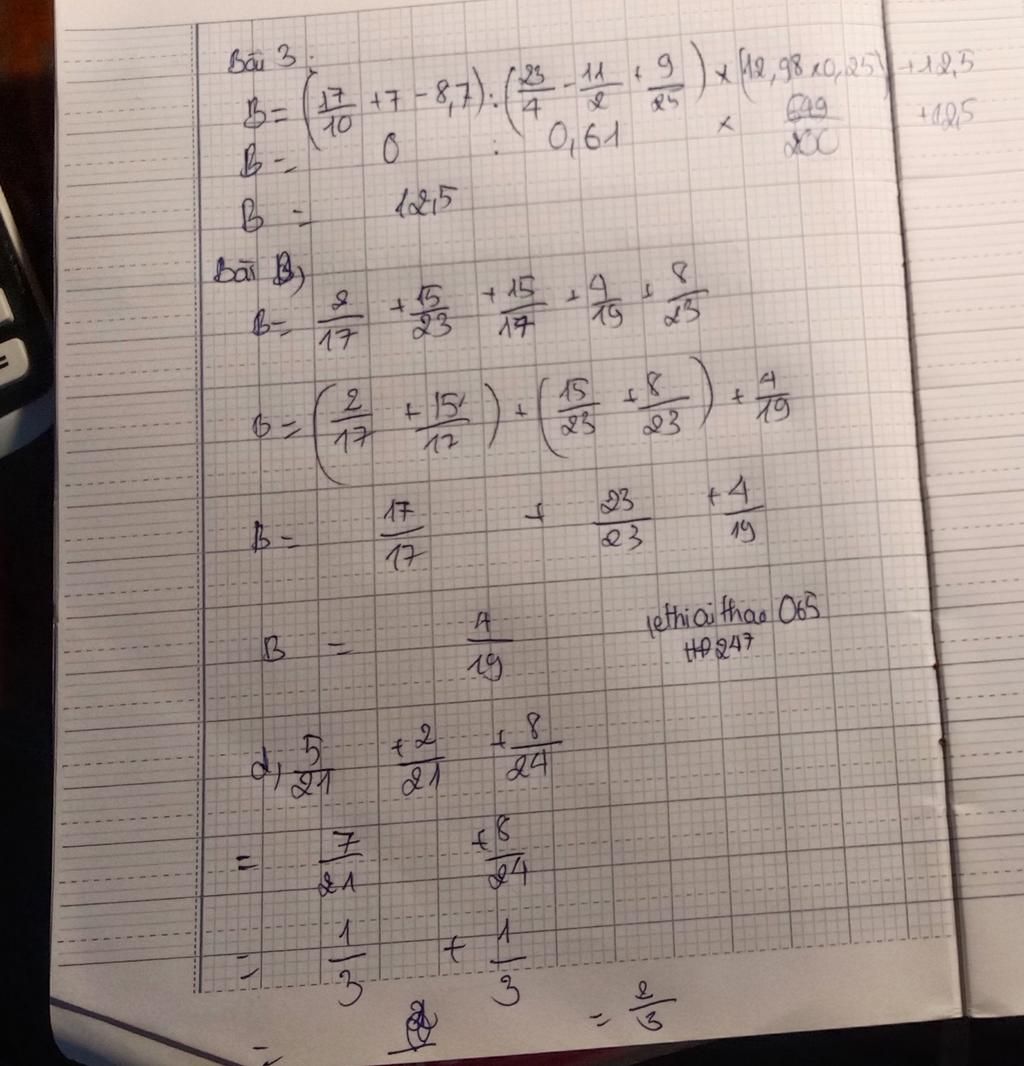 Bài 3:
B = (17/10 + 7 - 8,7) : (23/4 - 11/2 + 9/25) × (12,98 × 0,25) + 12,5
B = 0 : 0,61 × 649/200 + 12,5
B = 12,5
Bài B,
B = 2/17 + 15/23 + 15/17 + 4/19 + 8/23
B = (2/17 + 15/17) + (15/23 + 8/23) + 4/19
B = 17/17 + 23/23 + 4/19
B = 4/19
lethiaithao 065
HD247
d, 5/21 + 2/21 + 8/24
= 7/21 + 8/24
= 1/3 + 1/3
= = 2/3